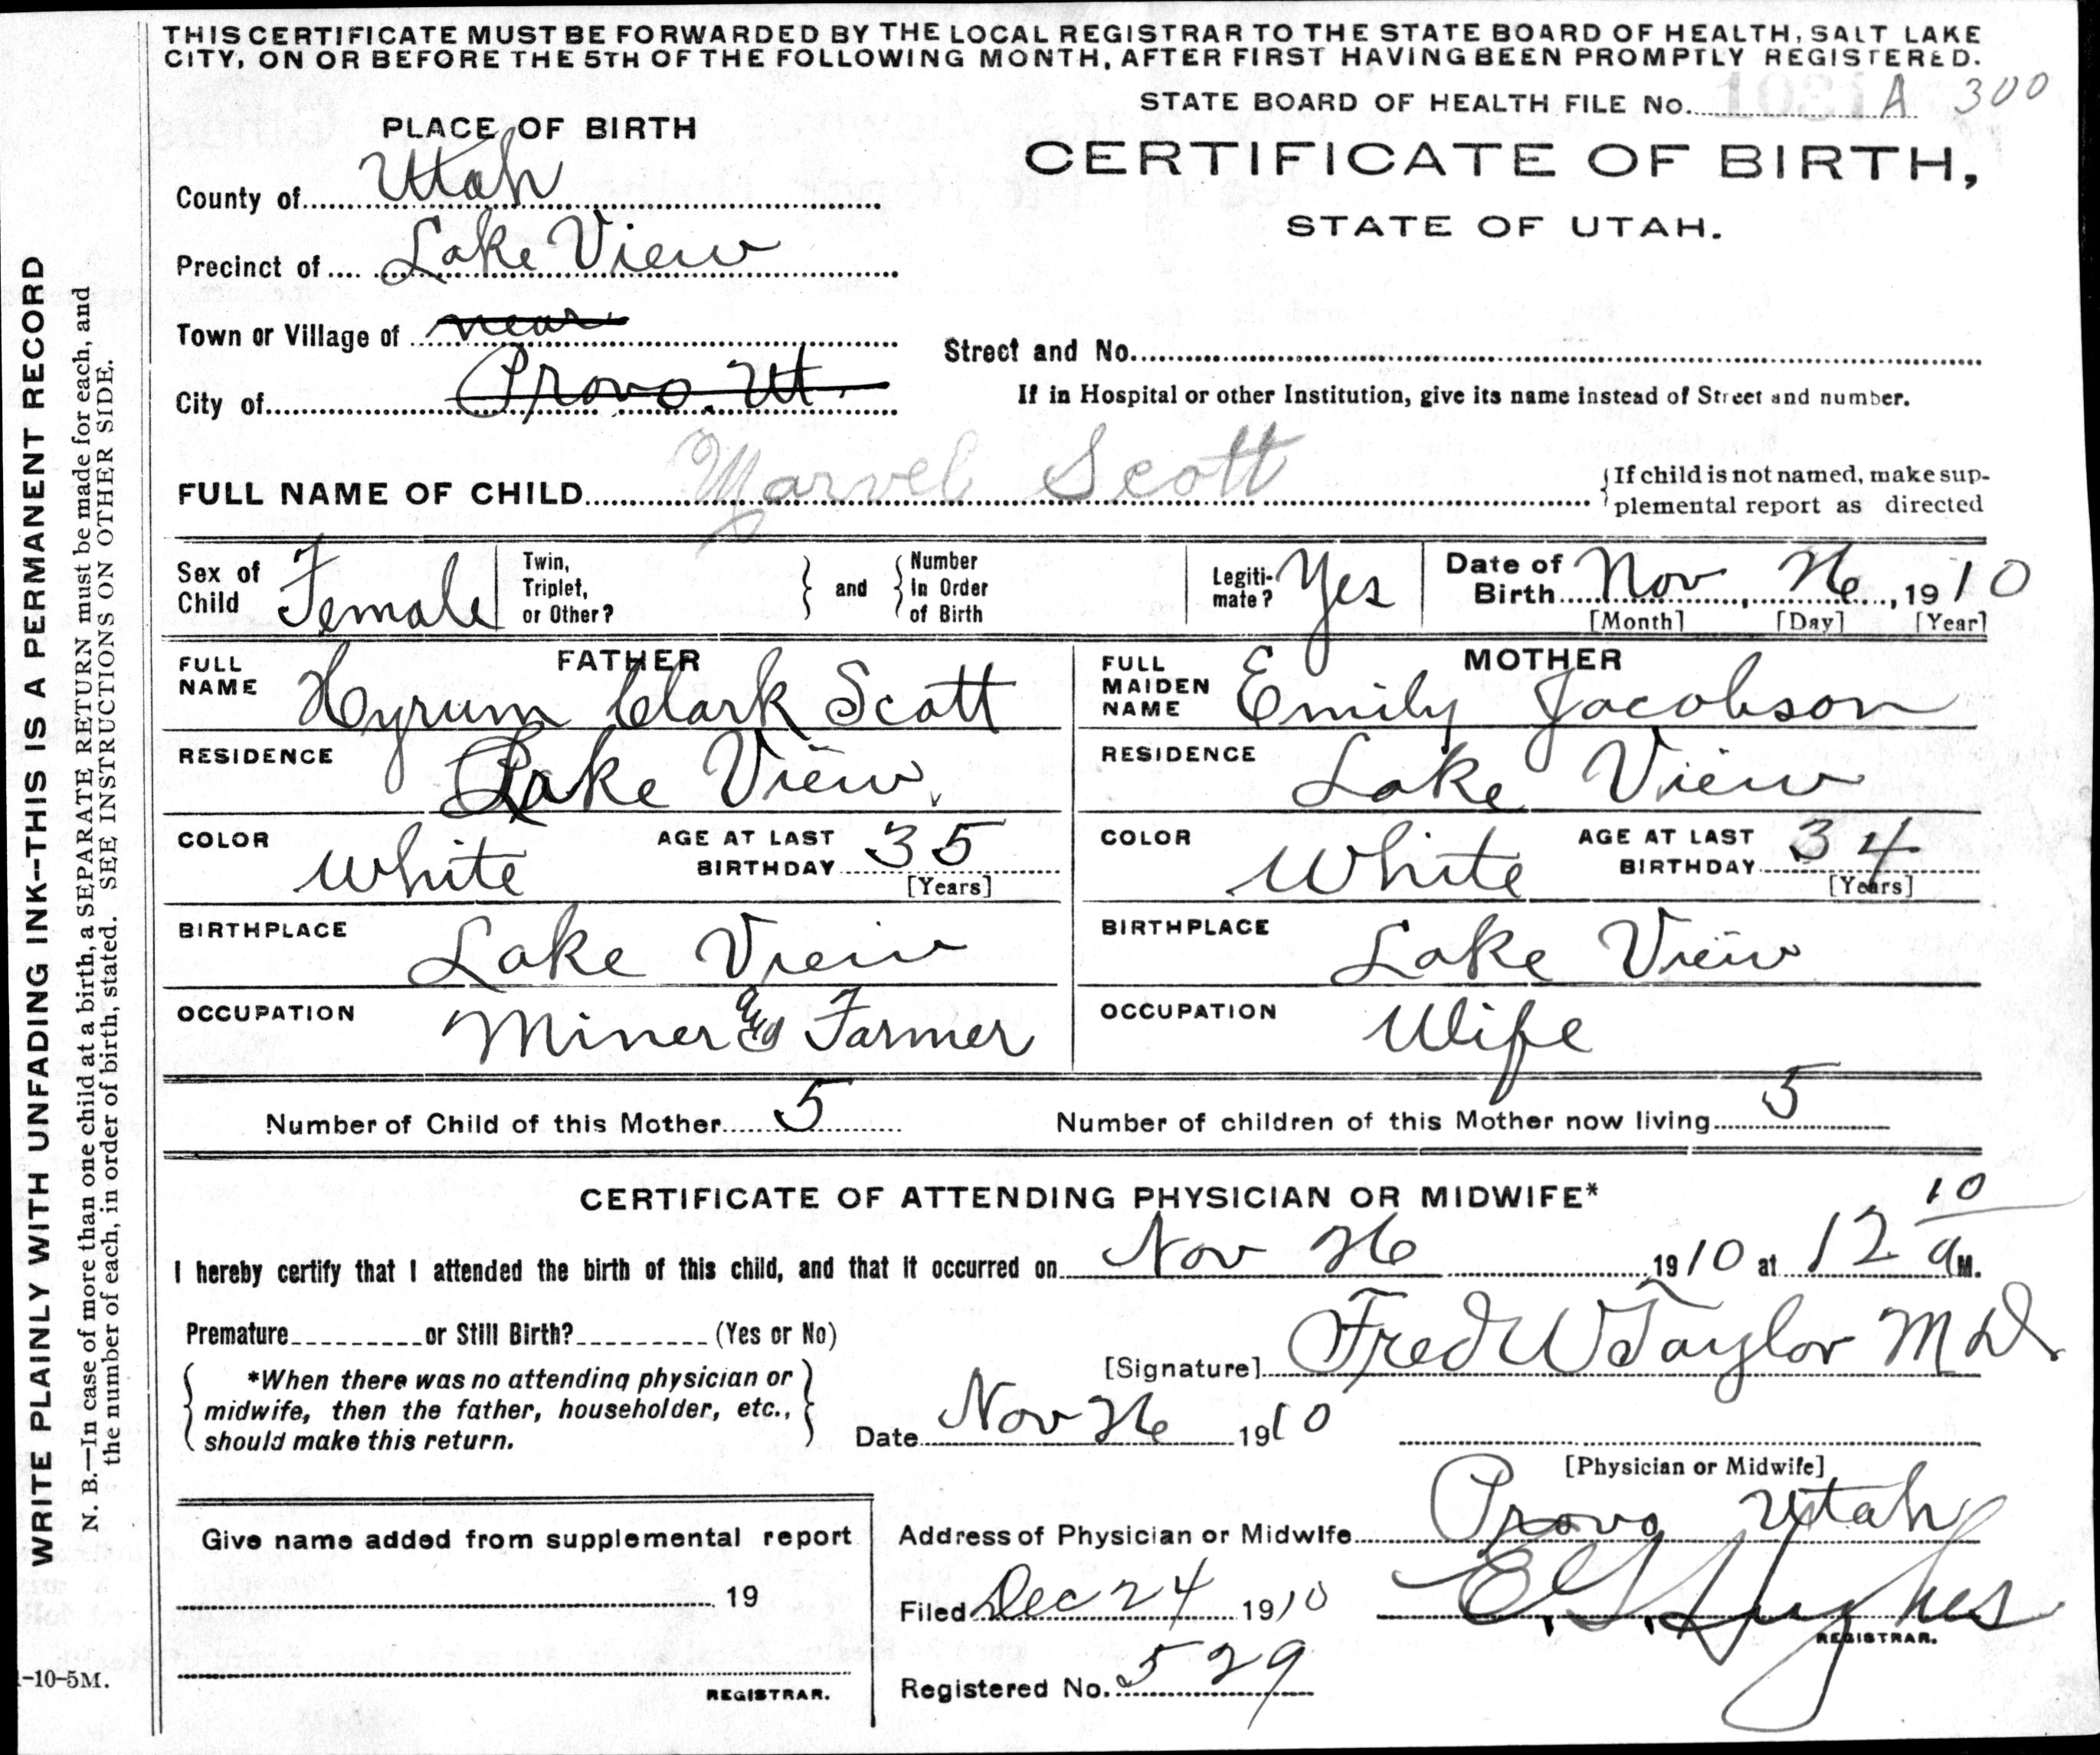 THIS CERTIFICATE MUST BE FORWARDED BY THE LOCAL REGISTRAR TO THE STATE BOARD OF HEALTH, SALT LAKE
CITY, ON OR BEFORE THE 5TH OF THE FOLLOWING MONTH, AFTER FIRST HAVING BEEN PROMPTLY REGISTERED.
STATE BOARD OF HEALTH FILE No. 1031 A 300
PLACE OF BIRTH
CERTIFICATE OF BIRTH,
STATE OF UTAH.
County of Utah
Precinct of Lake View
Town or Village of near
Street and No.
City of Provo. Ut.
If in Hospital or other Institution, give its name instead of Street and number.
FULL NAME OF CHILD Marvel Scott
If child is not named, make sup-
plemental report as directed
Sex of Child Female
Twin, Triplet, or Other? and Number In Order of Birth
Legiti-mate? Yes
Date of Birth Nov 26, 1910
[Month] [Day] [Year]
FATHER
FULL NAME Hyrum Clark Scott
RESIDENCE Lake View
COLOR White AGE AT LAST BIRTHDAY 35
[Years]
BIRTHPLACE Lake View
OCCUPATION Miner and Farmer
MOTHER
FULL MAIDEN NAME Emily Jacobson
RESIDENCE Lake View
COLOR White AGE AT LAST BIRTHDAY 34
[Years]
BIRTHPLACE Lake View
OCCUPATION Wife
Number of Child of this Mother 5 Number of children of this Mother now living 5
CERTIFICATE OF ATTENDING PHYSICIAN OR MIDWIFE*
I hereby certify that I attended the birth of this child, and that it occurred on Nov 26 1910 at 12 10 a M.
Premature or Still Birth? (Yes or No)
[Signature] Fred W Taylor M D
*When there was no attending physician or
midwife, then the father, householder, etc.,
should make this return.
Date Nov 26 1910
[Physician or Midwife]
Address of Physician or Midwife Provo Utah
Give name added from supplemental report
19
REGISTRAR.
Filed Dec 24 1910 E. G. Hughes
REGISTRAR.
Registered No. 529
-10-5M.
WRITE PLAINLY WITH UNFADING INK--THIS IS A PERMANENT RECORD
N. B.—In case of more than one child at a birth, a SEPARATE RETURN must be made for each, and
the number of each, in order of birth, stated. SEE INSTRUCTIONS ON OTHER SIDE.